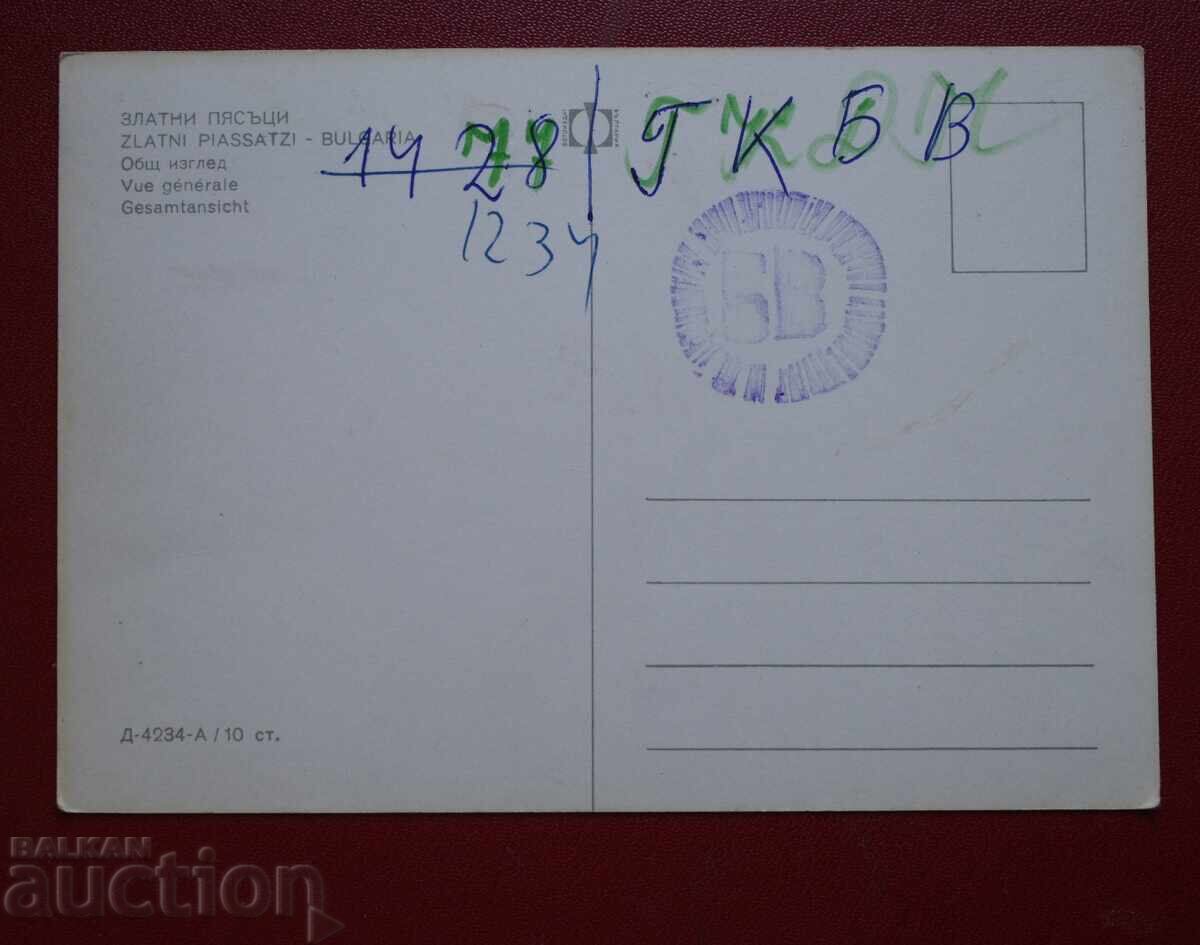 ЗЛАТНИ ПЯСЪЦИ
ZLATNI PIASSATZI - BULGARIA
Общ изглед
Vue générale
Gesamtansicht
1428 ГКБВ
1234
БВ
Д-4234-А / 10 ст.
BALKAN
auction